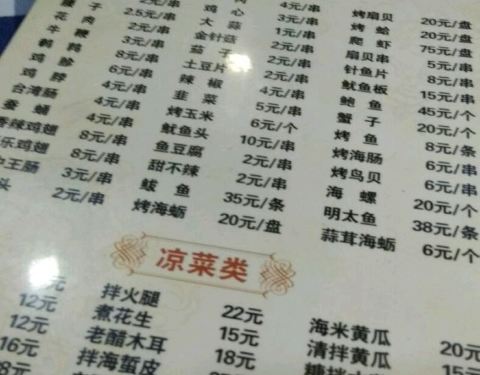 肉
花
牛
鹌鹑
鸡胗
鸡脖
台湾肠
蚕蛹
香辣鸡翅
乐鸡翅
王肠
头
2元/串
2.5元/串
2元/串
3元/串
8元/串
6元/串
4元/串
4元/串
4元/串
8元/串
8元/串
3元/串
2元/串
鸡心
大蒜
金针菇
茄子
土豆片
辣椒
韭菜
烤玉米
鱿鱼头
鱼豆腐
甜不辣
鲅鱼
烤海蛎
4元/串
3元/串
1元/串
3元/串
2元/串
2元/串
4元/串
5元/串
6元/个
10元/串
2元/串
2元/串
35元/条
20元/盘
烤扇贝
烤蛤
爬虾
扇贝串
针鱼片
鱿鱼板
鲍鱼
蟹子
烤鱼
烤海肠
烤鸟贝
海螺
明太鱼
蒜茸海蛎
20元/盘
20元/盘
75元/盘
5元/串
8元/串
15元/串
45元/个
20元/个
8元/条
6元/串
6元/串
20元/个
38元/条
6元/个
凉菜类
12元
12元
16元
拌火腿
煮花生 22元
老醋木耳 15元
拌海蜇皮 18元
海米黄瓜 20元
清拌黄瓜 15元